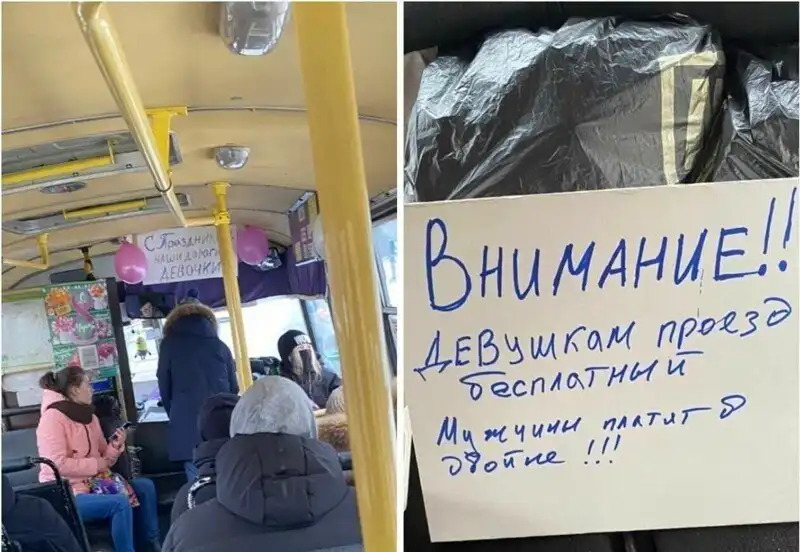 С Праздник
наши дороги
девочки
ВНИМАНИЕ!!
ДЕВУШКАМ проезд
бесплатный
Мужчины платят в
двойне !!!